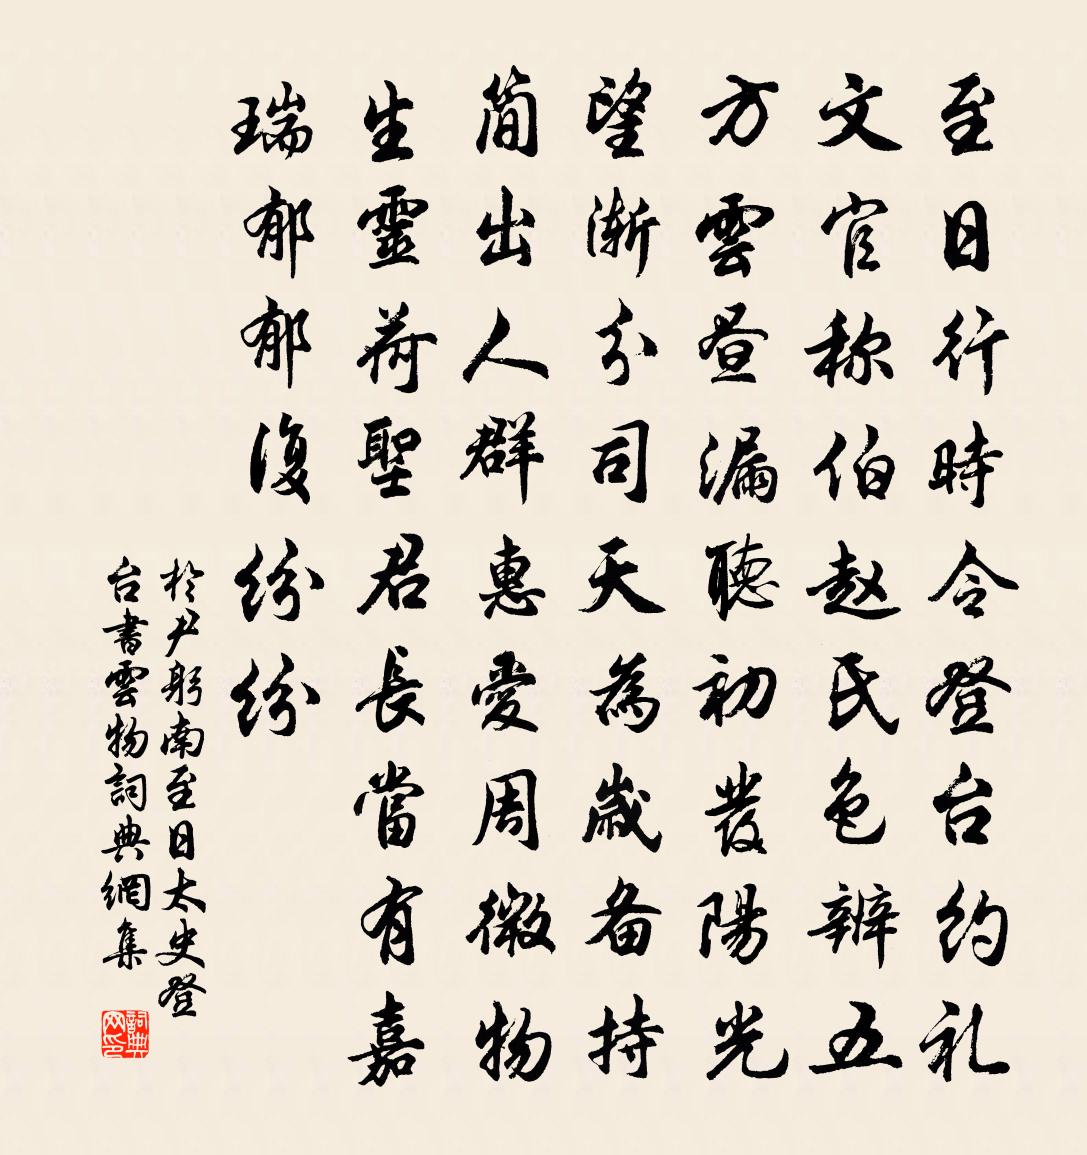 至日行時令登台約礼
文官称伯赵氏色辨五
方雲昼漏聴初發陽光
望渐分司天為歲备持
简出人群惠愛周微物
生靈荷聖君長當有嘉
瑞郁郁復纷纷
於尹躬南至日太史登
台書雲物詞典網集
詞典网印